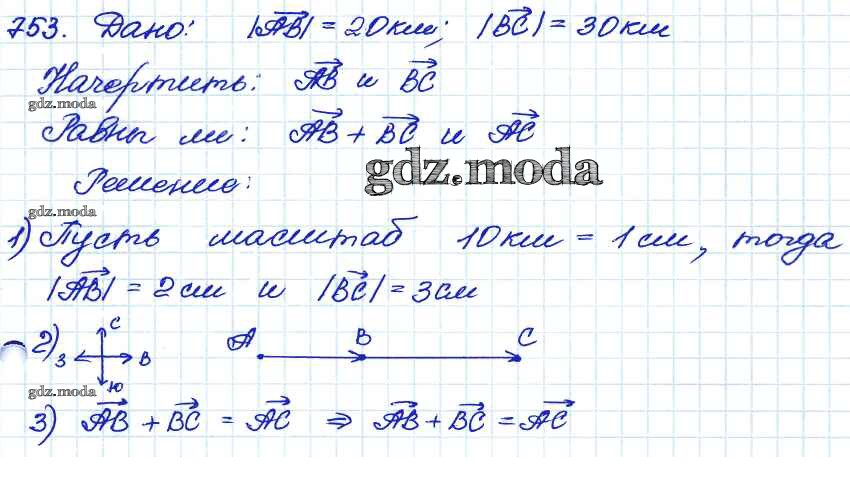 753. Дано: |AB| = 20км; |BC| = 30км
Начертить: AB и BC
gdz.moda
Равны ли: AB + BC и AC
gdz.moda
Решение:
gdz.moda
1) Пусть масштаб 10км = 1см, тогда
|AB| = 2см и |BC| = 3см
2) С З В Ю A B C
gdz.moda
3) AB + BC = AC ⇒ AB + BC = AC